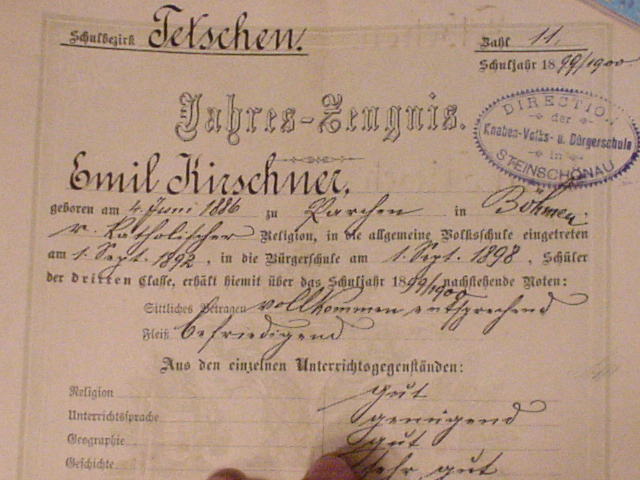 Schulbezirk Tetschen.
Zahl 11.
Schuljahr 1899/1900.
Jahres-Zeugnis.
DIRECTION
der
Knaben-Volks- u. Bürgerschule
in
STEINSCHÖNAU
Emil Kirschner,
geboren am 4. Juni 1886 zu Parchen in Böhmen,
r. katholischer Religion, in die allgemeine Volksschule eingetreten
am 1. Sept. 1892, in die Bürgerschule am 1. Sept. 1898, Schüler
der dritten Classe, erhält hiemit über das Schuljahr 1899/1900 nachstehende Noten:
Sittliches Betragen vollkommen entsprechend
Fleiß befriedigend
Aus den einzelnen Unterrichtsgegenständen:
Religion gut
Unterrichtssprache genügend
Geographie gut
Geschichte sehr gut